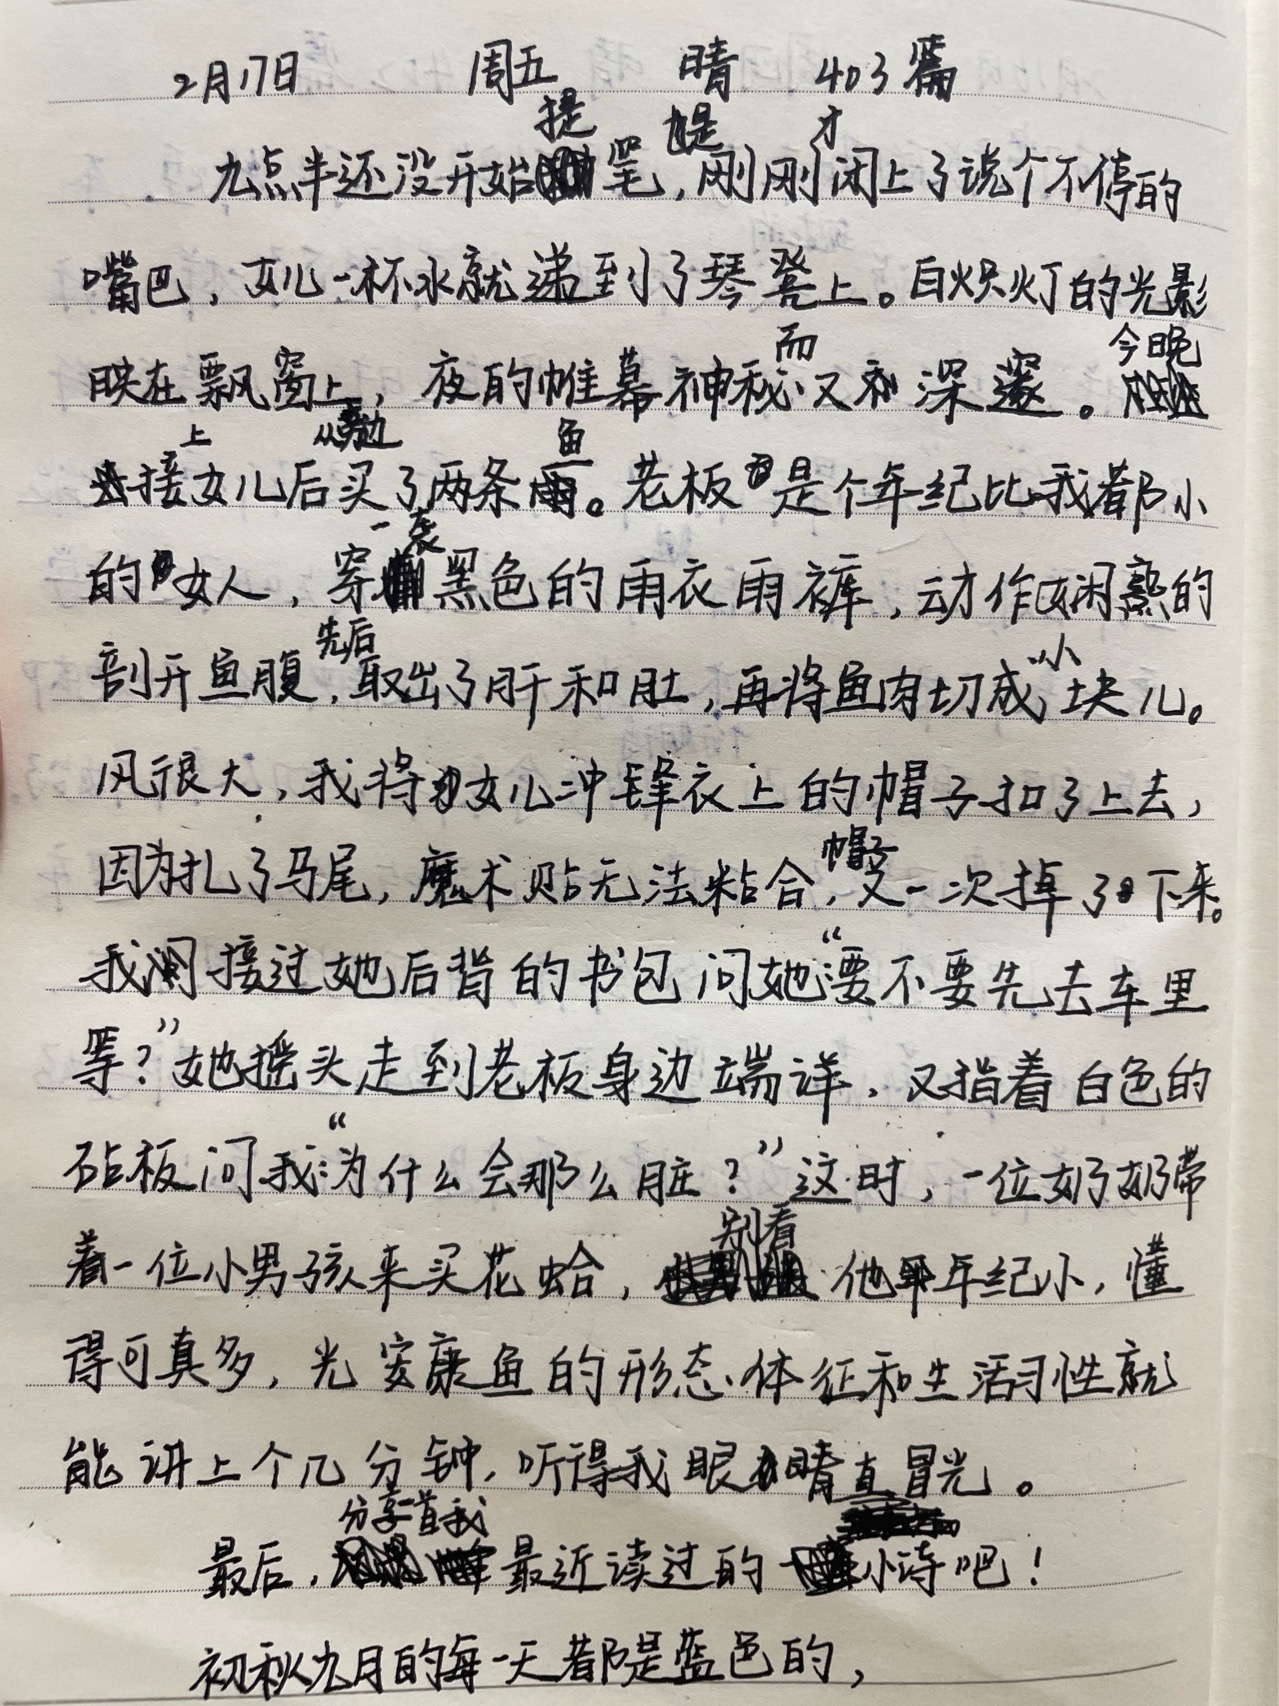 2月17日 周五 晴 403篇
九点半还没开始提笔,是刚刚才闭上了说个不停的
嘴巴,女儿一杯水就递到了琴凳上。白炽灯的光影
映在飘窗上,夜的帷幕神秘而又深邃。今晚
接上女儿后从旁边买了两条鱼。老板是个年纪比我都小
的女人,穿一袭黑色的雨衣雨裤,动作娴熟的
剖开鱼腹,先后取出了肝和肚,再将鱼肉切成小块儿。
风很大,我将女儿冲锋衣上的帽子扣了上去,
因为扎了马尾,魔术贴无法粘合,帽子又一次掉了下来。
我接过她后背的书包问她:“要不要先去车里
等?”她摇头走到老板身边端详,又指着白色的
砧板问我:“为什么会那么脏?”这时,一位奶奶带
着一位小男孩来买花蛤,别看他年纪小,懂
得可真多,光安康鱼的形态、体征和生活习性就
能讲上个几分钟,听得我眼睛直冒光。
最后,分享一首我最近读过的小诗吧!
初秋九月的每一天都是蓝色的,